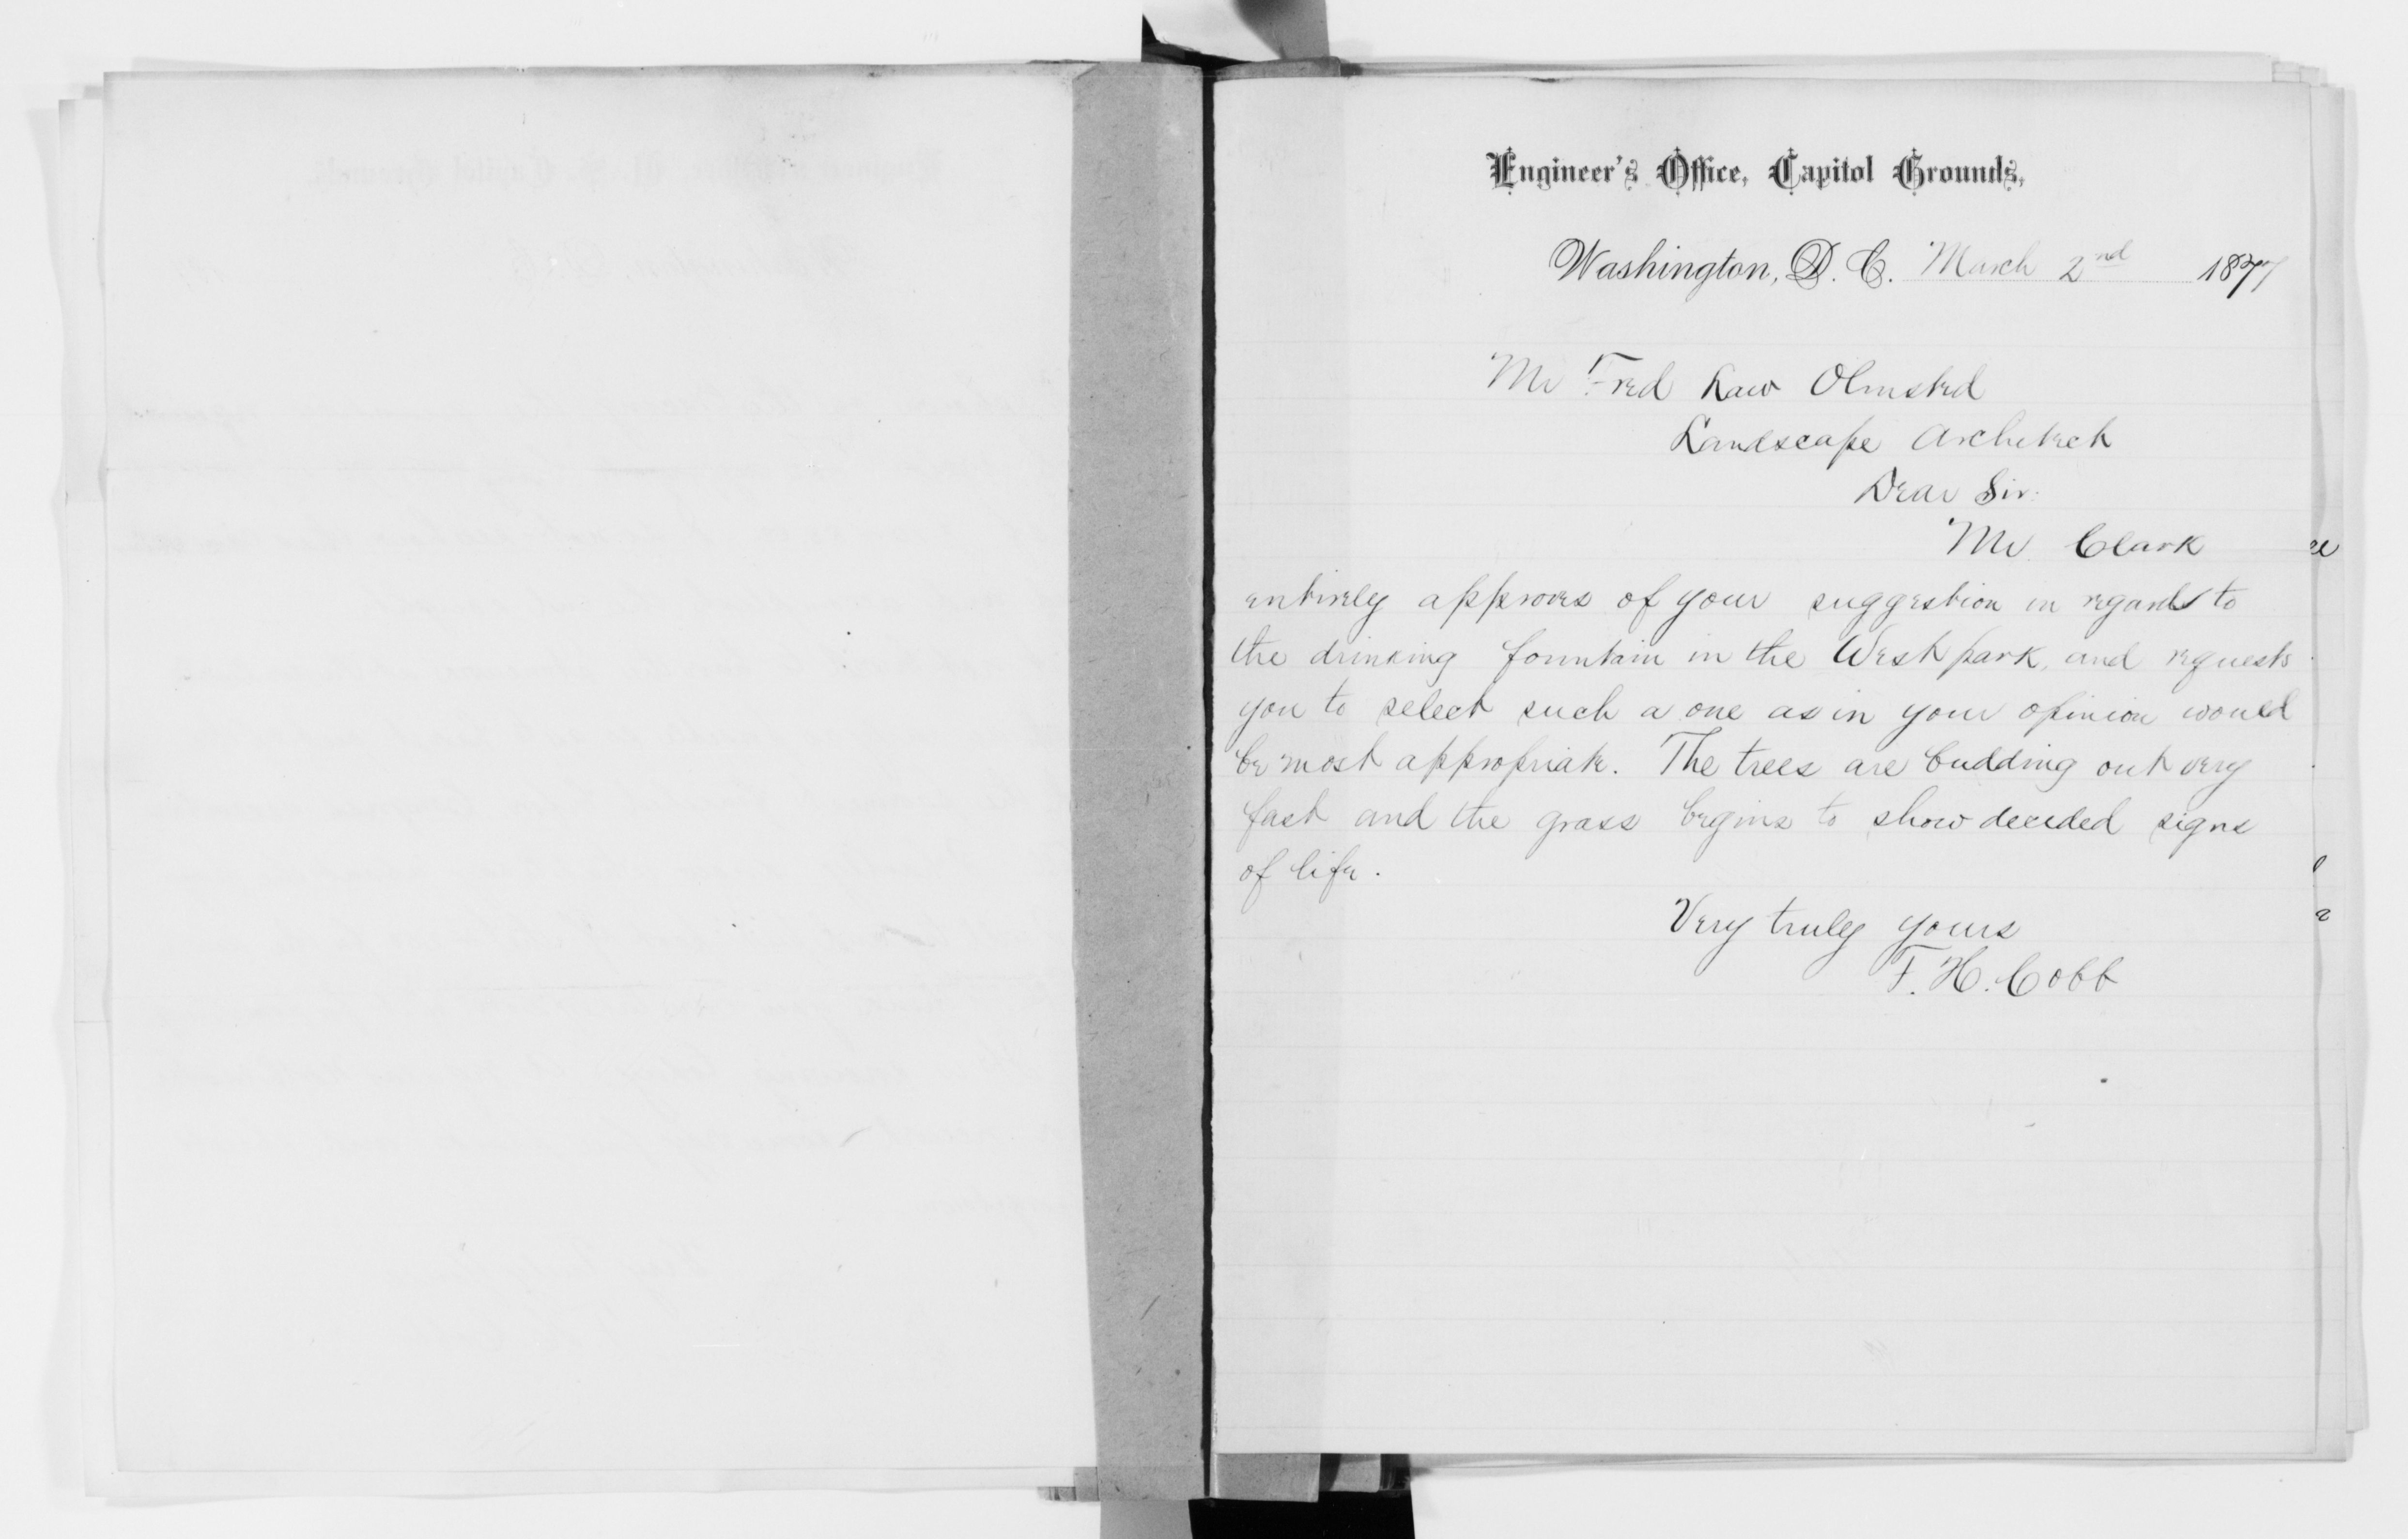 Engineer's Office, Capitol Grounds,
Washington, D. C. March 2nd 1877
Mr Fred Law Olmsted
Landscape Architect
Dear Sir:
Mr. Clark
entirely approves of your suggestion in regards to
the drinking fountain in the West park, and requests
you to select such a one as in your opinion would
be most appropriate. The trees are budding out very
fast and the grass begins to show decided signs
of life.
Very truly yours
F. H. Cobb